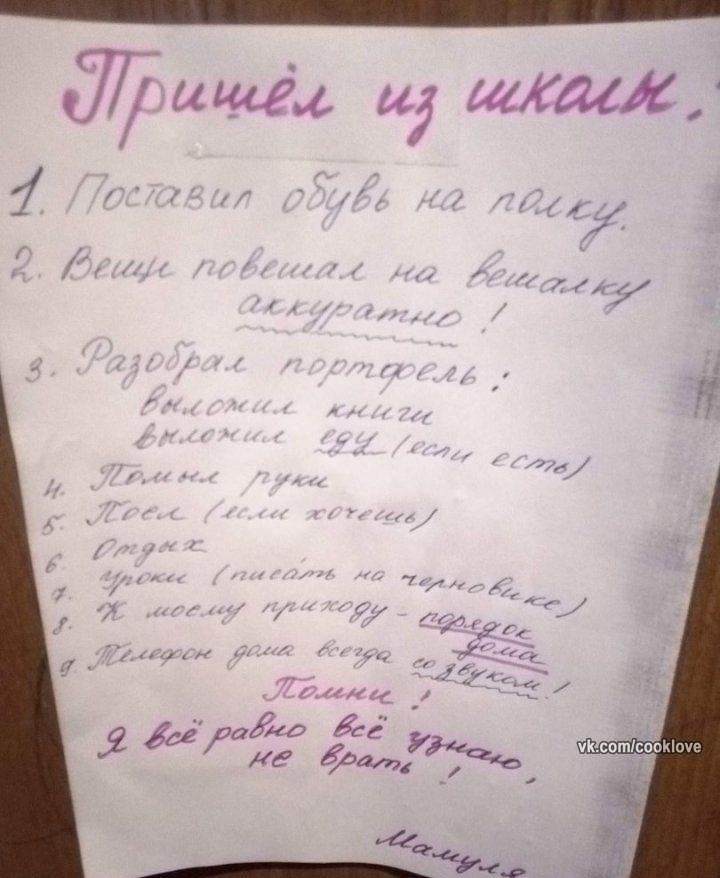 Пришёл из школы:
1. Поставил обувь на полку.
2. Вещи повешал на вешалку
аккуратно!
3. Разобрал портфель:
выложил книги
выложил еду (если есть)
4. Помыл руки
5. Поел (если хочешь)
6. Отдых
7. Уроки (писать на черновике)
8. К моему приходу - порядок
дома
9. Телефон дома всегда со звуком!
Помни!
Я всё равно всё узнаю,
не врать!
Мамуля
vk.com/cooklove